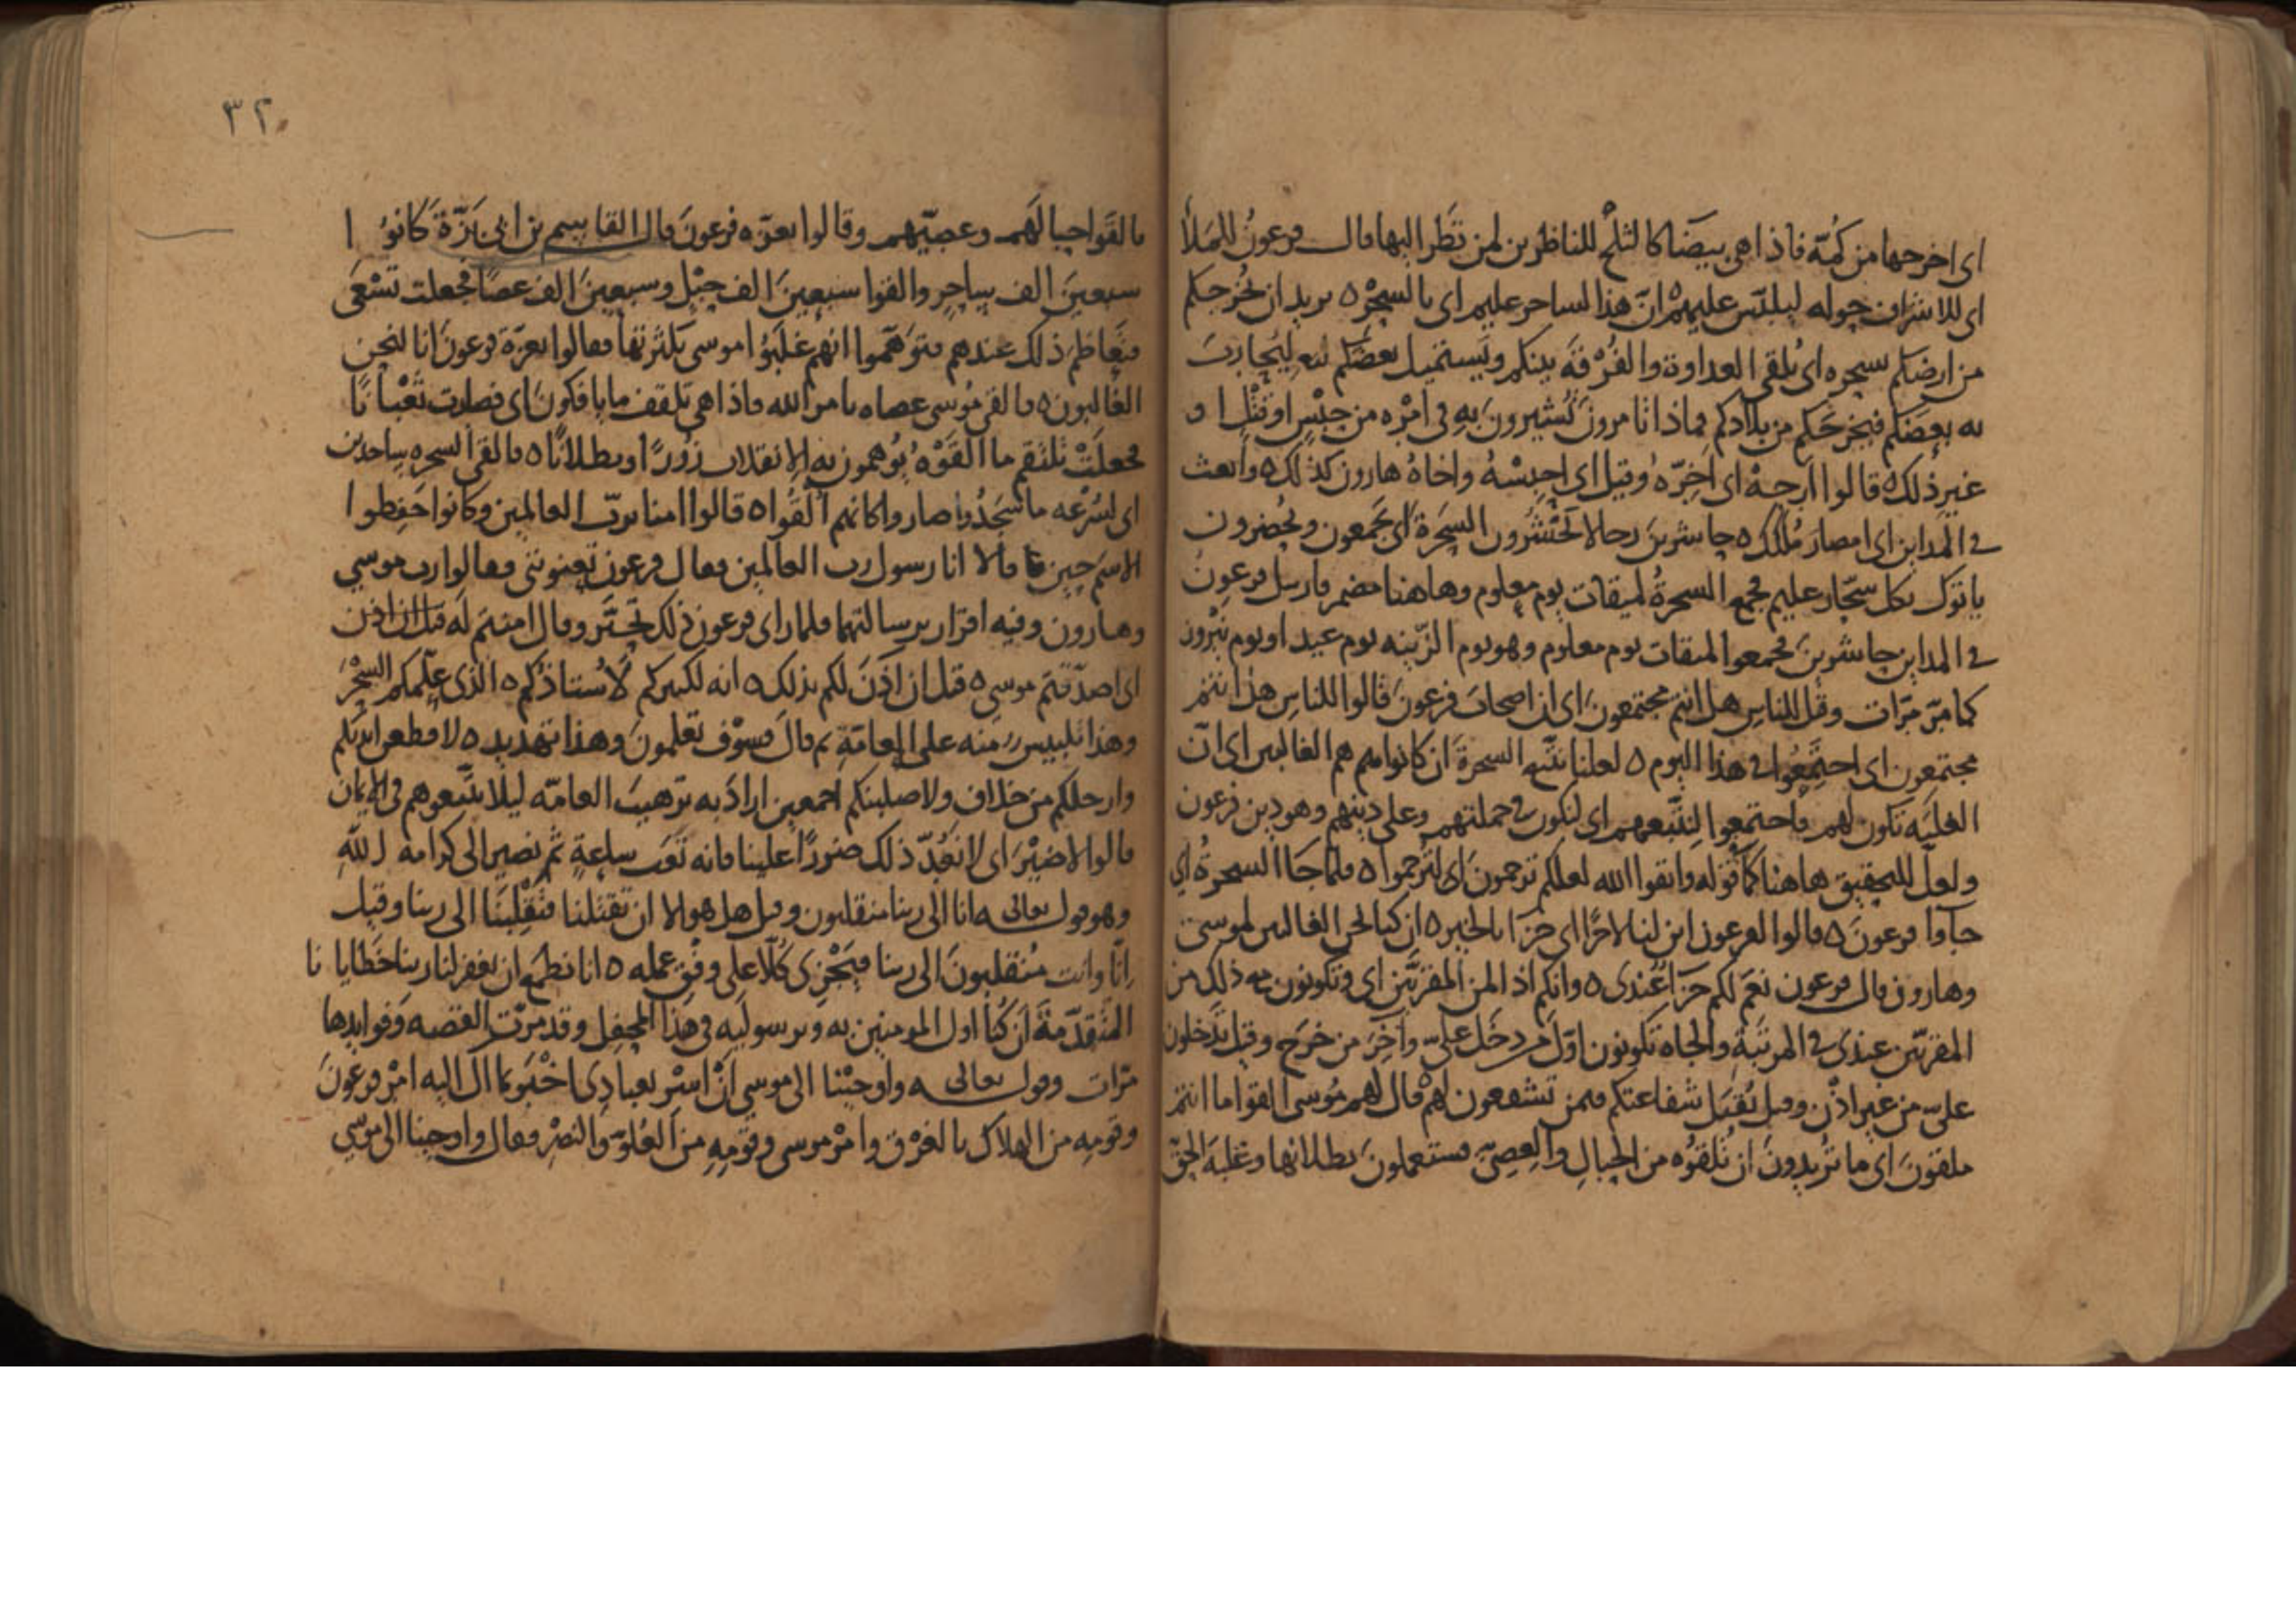 اى اخرجها من كمّه فاذا هى بيضا كالثلج للناظرين لمن نظر اليها قال فرعون للملأ
اى للاشراف حوله ليلبّس عليهم ان هذا لساحر عليم اى بالسحر ٥ يريد ان يخرجكم
من ارضكم بسحره اى يلقى العداوة والفرقة بينكم ويستميل بعضكم ليحارب
به بعضكم فيخرجكم من بلادكم فماذا تامرون تشيرون به فى امره من حبس او قتل او
غير ذلك ٥ قالوا ارجه اى اخره وقيل اى احبسه واخاه هارون كذلك ٥ وابعث
فى المداين اى امصار ملكك ٥ حاشرين رجالا يحشرون السحرة اى يجمعون ويحضرون
ياتوك بكل سحّار عليم فجمع السحرة لميقات يوم معلوم وهاهنا مضمر فارسل فرعون
فى المداين حاشرين فجمعوا لميقات يوم معلوم وهو يوم الزينه يوم عيد او يوم نيروز
كما مرّ مرّات وقيل للناس هل انتم مجتمعون اى ان اصحاب فرعون قالوا للناس هل انتم
مجتمعون اى اجتمعوا فى هذا اليوم ٥ لعلنا نتبع السحرة ان كانوا هم الغالبين اى انّ
الغلبه تكون لهم فاجتمعوا لنتّبعهم اى لنكون فى جملتهم وعلى دينهم وهو دين فرعون
ولعلّ للتحقيق هاهنا كما قوله واتقوا الله لعلكم ترحمون اى لترحموا ٥ فلما جا السحرة اى
جاوا فرعون ٥ قالوا لفرعون اين لنا لاجرا اى جزا بالخير ٥ ان كنا نحن الغالبين لموسى
وهارون قال فرعون نعم لكم جزا عندى ٥ وانكم اذا لمن المقربين اى وتكونون مع ذلك من
المقربين عندى فى المرتبة والجاه تكونون اوّل من دخل علىّ وآخر من خرج وقيل تدخلون
علىّ من غير اذن وقيل تقبل شفاعتكم فيمن تشفعون لهم قال لهم موسى القوا ما انتم
ملقون اى ما تريدون ان تلقوه من الحبال والعصىّ فستعلمون بطلانها وغلبة الحقّ
٣٢
فالقوا حبالهم وعصيّهم وقالوا بعزه فرعون قال القاسم بن ابى بزّة كانوا
سبعين الف ساحر والقوا سبعين الف حبل وسبعين الف عصا فجعلت تسعى
فتعاظم ذلك عندهم فتوهّموا انهم غلبوا موسى بكثرتها فقالوا بعزّة فرعون انا لنحن
الغالبون ٥ فالقى موسى عصاه بامر الله فاذا هى تلقف ما يافكون اى فصارت ثعبانًا
فجعلت تلتقم ما القوه يوهمون به الانقلاب زورًا وبطلانًا ٥ فالقى السحره ساجدين
اى لسرعه ما سجدوا صاروا كانهم القوا ٥ قالوا امنا بربّ العالمين وكانوا حفظوا
الاسم حين قالا انا رسول رب العالمين فقال فرعون تعنوننى فقالوا رب موسى
وهارون وفيه اقرار برسالتهما فلما راى فرعون ذلك تحيّر وقال امنتم له قبل ان اذن
اى اصدّقتم موسى ٥ قبل ان اذن لكم بذلك ٥ انه لكبيركم لاستاذكم ٥ الذى علّمكم السحر
وهذا تلبيس منه على العامّة ثم قال فسوف تعلمون وهذا تهديد ٥ لاقطعن ايديكم
وارجلكم من خلاف ولاصلبنكم اجمعين اراد به ترهيب العامّه ليلا يتّبعوهم فى الايمان
قالوا لا ضير اى لا نعدّ ذلك ضررًا علينا فانه تعب ساعة ثم نصير الى كرامه الله
وهو قوله تعالى انا الى ربنا منقلبون وقيل هل هو الا ان تقتلنا فتقلبنا الى ربنا وقيل
انّا وانت منقلبون الى ربنا فيجزى كلّا على وفق عمله ٥ انا نطمع ان يغفر لنا ربنا خطايانا
المتقدّمة ان كنا اول المومنين به وبرسوليه فى هذا المحفل وقد مرّت القصه وفوايدها
مرّات وقوله تعالى واوحينا الى موسى ان اسر بعبادى اخبر بما آل اليه امر فرعون
وقومه من الهلاك بالغرق وامر موسى وقومه من العلوّ والنصر وقال واوحينا الى موسى